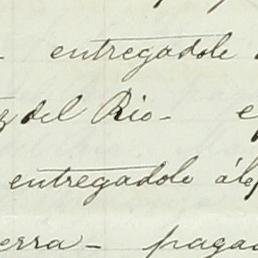 entregadole
z del Rio-
entregadole ále
erra- paga